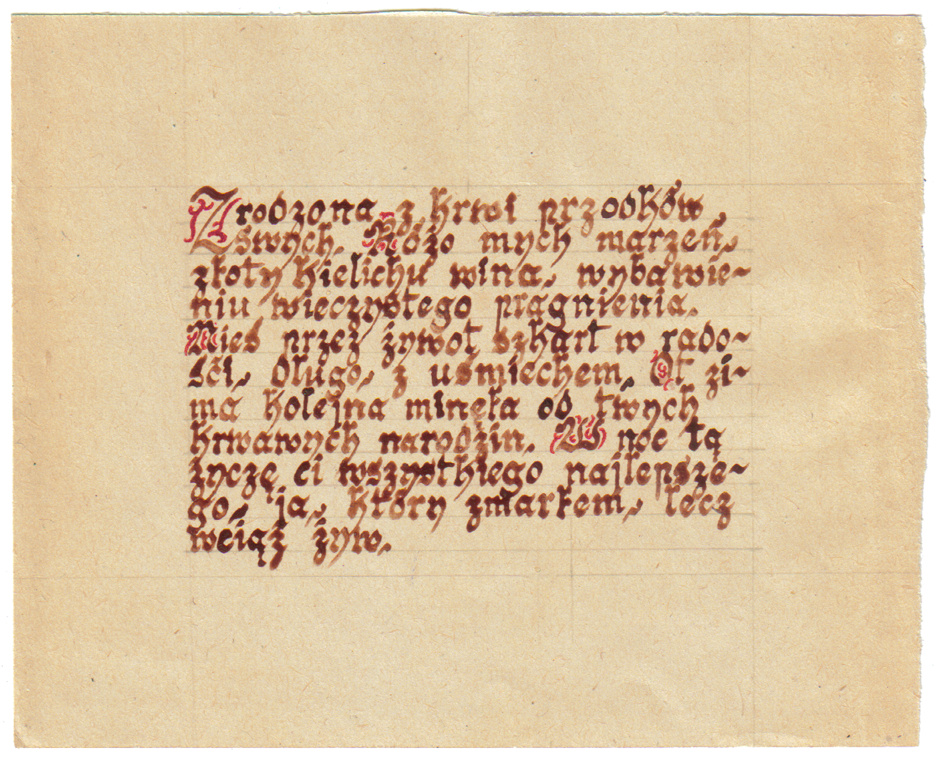 Zrodzona z krwi przodków
swych. Różo mych marzeń,
złoty kielichu wina, wybawie~
niu wieczystego pragnienia.
Nieś przez żywot szkarł w rado~
ści, długo, z uśmiechem. Ot zi~
ma kolejna minęła od twych
krwawych narodzin. W noc tą
życzę ci wszystkiego najlepsze~
go, ja, który zmarłem, lecz
wciąż żyw.